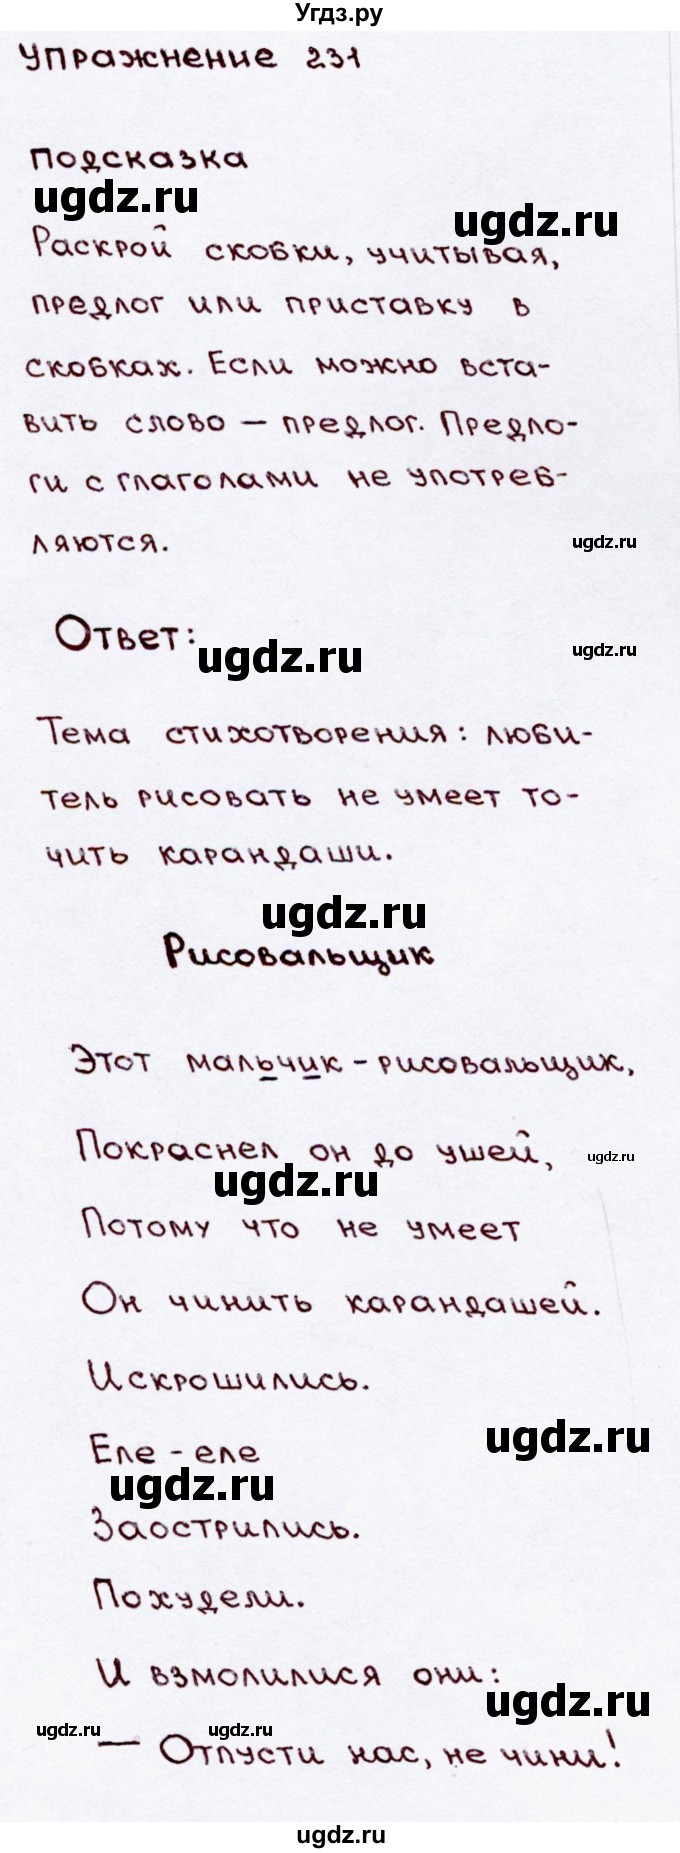 Угдз.ру
Упражнение 231
Подсказка
ugdz.ru
ugdz.ru
Раскрой скобки, учитывая,
предлог или приставку в
скобках. Если можно вста-
вить слово – предлог. Предло-
ги с глаголами не употреб-
ляются.
ugdz.ru
Ответ:
ugdz.ru
ugdz.ru
Тема стихотворения: люби-
тель рисовать не умеет то-
чить карандаши.
ugdz.ru
Рисовальщик
Этот мальчик - рисовальщик,
Покраснел он до ушей,
ugdz.ru
ugdz.ru
Потому что не умеет
Он чинить карандашей.
Искрошились.
ugdz.ru
Еле - еле
ugdz.ru
Заострились.
Похудели.
И взмолилися они:
ugdz.ru
ugdz.ru
ugdz.ru
— Отпусти нас, не чини!
ugdz.ru